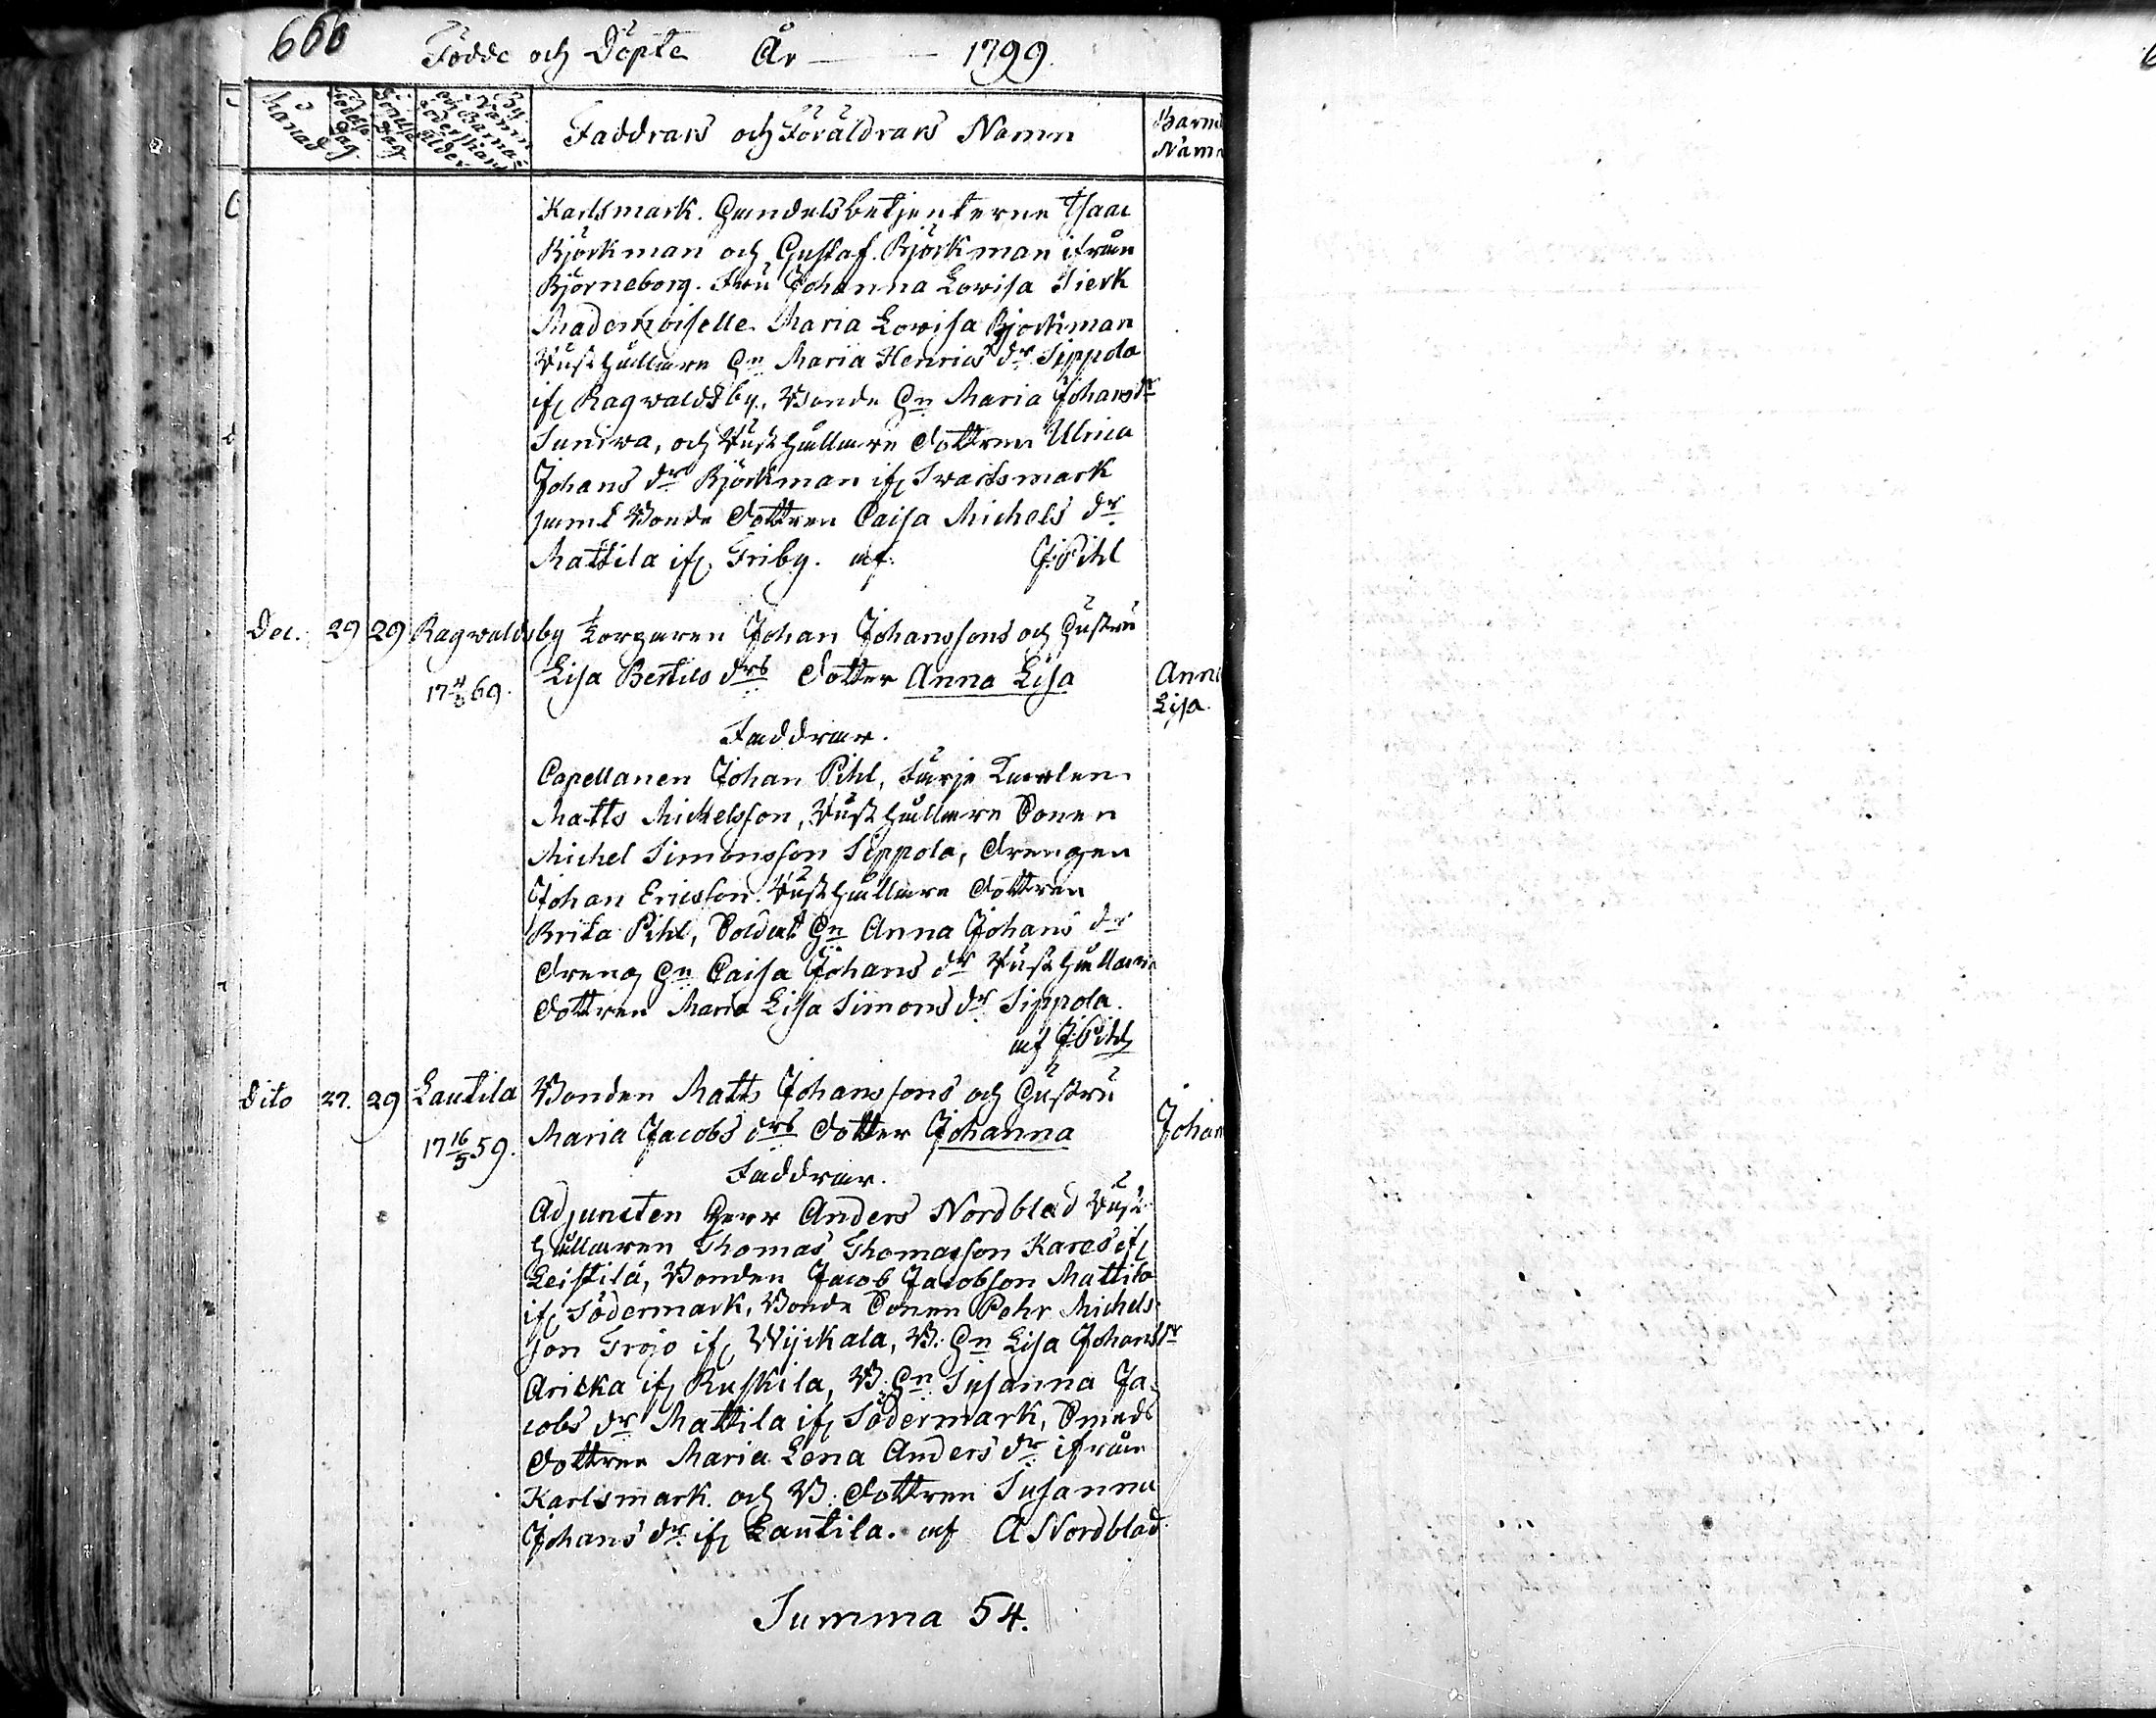 666 Födde och Döpte År — 1799.
Månad
Födelse Dag.
Döpelse Dag
By Namn och Barna Föderskans ålder
Faddrars och Föräldrars Namn
Barns Namn
Karlsmark. Handelsbetjenterne Isaac
Björkman och Gustaf Björkman ifrån
Björneborg. Fru Johanna Lovisa Dierk
Mademoiselle Maria Lovisa Björkman
Rusthållare Hn Maria Henrics dr Sippola
if. Ragwaldsby. Bonde Hn Maria Johans dr
Suniva, och Rusthållare dottren Ulrica
Johans dr Björkman if. Swartsmark
samt Bonde dottren Caisa Michels dr
Mattila if. Friby. af. J. Pihl
Dec. 29 29 Ragwaldsby Torparen Johan Johanssons och Hustru
17 69. Lisa Bertils drs dotter Anna Lisa
Anna
Lisa.
Faddrar.
Capellanen Johan Pihl, Färje Karlen
Matts Mickelsson, Rusthållare Sonen
Michel Simonsson Sippola, drengen
Johan Ericsson. Rusthållare dottren
Brita Pihl, Soldat Hn Anna Johans dr
dreng Hn Caisa Johans dr Rusthållare
dottren Maria Lisa Simons dr Sippola.
af J. Pihl
Dito 27. 29 Lautila Bonden Matts Johanssons och Hustru
17 16/5 59. Maria Jacobs drs dotter Johanna
Johan
Faddrar.
Adjuncten Herr Anders Nordblad Rust
hållaren Thomas Thomasson Kares if
Leistilä, Bonden Jacob Jacobsson Mattila
if. Södermark, Bonde Sonen Pehr Michels-
son Fröjo if. Wijckala, B. Hn Lisa Johans dr
Aricka if Ruskila, B. Hn Susanna Ja-
cobs dr Mattila if. Södermark, Smeds
dottren Maria Lena Anders dr ifrån
Karlsmark. och B. dottren Susanna
Johans dr. if. Lautila. af A Nordblad.
Summa 54.